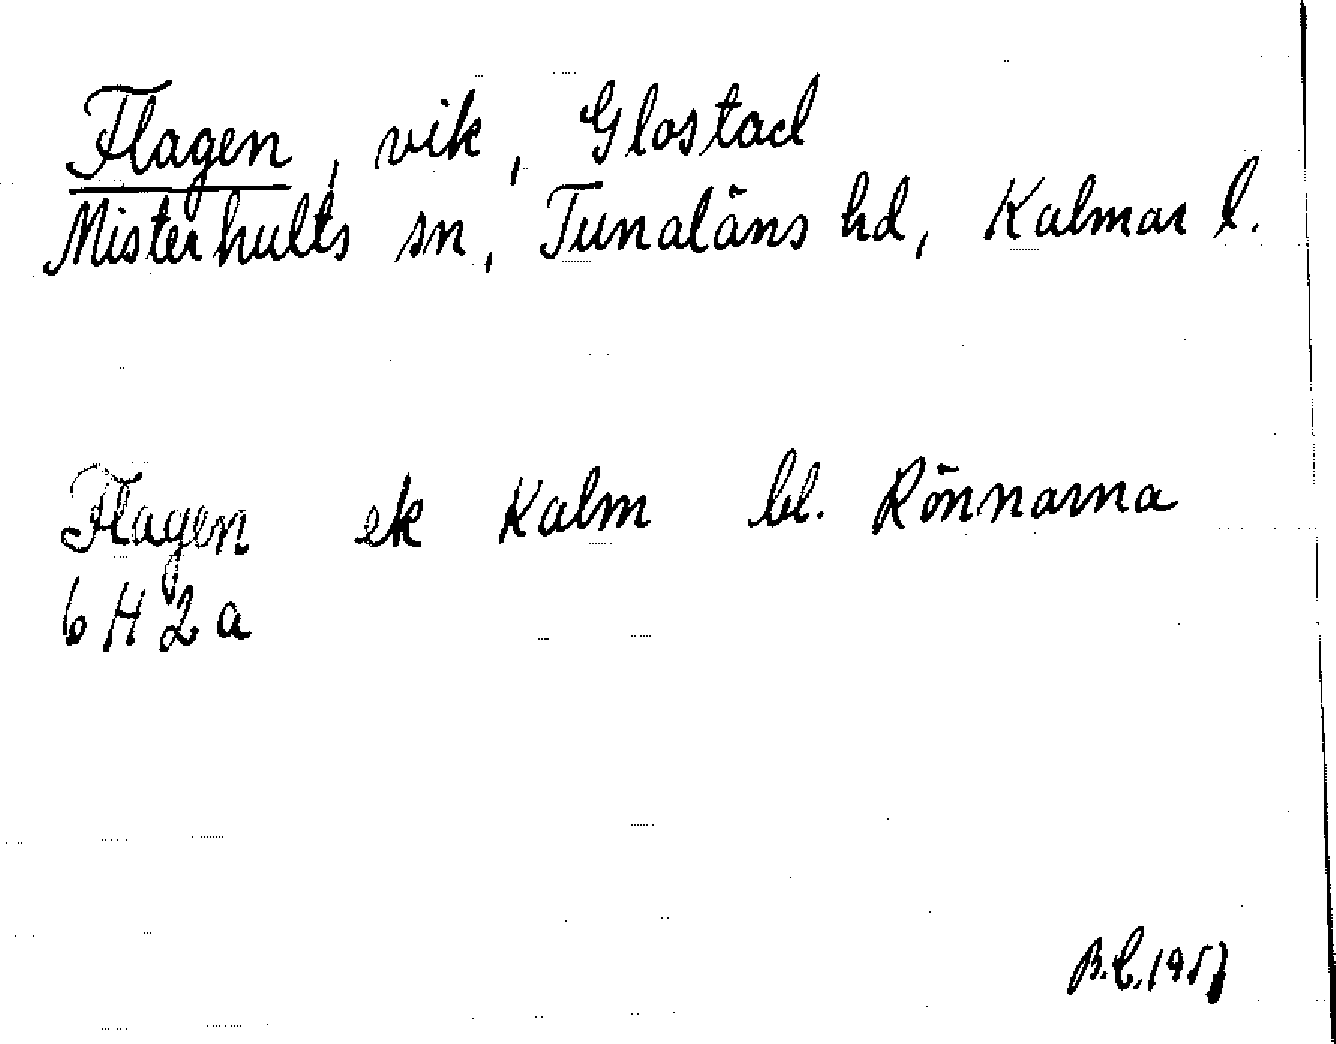 Flagen, vik, Glostad
Misterhults sn, Tunaläns hd, Kalmar l.
Flagen ek Kalm bl. Rönnarna
6 H 2 a
B.C. 1957